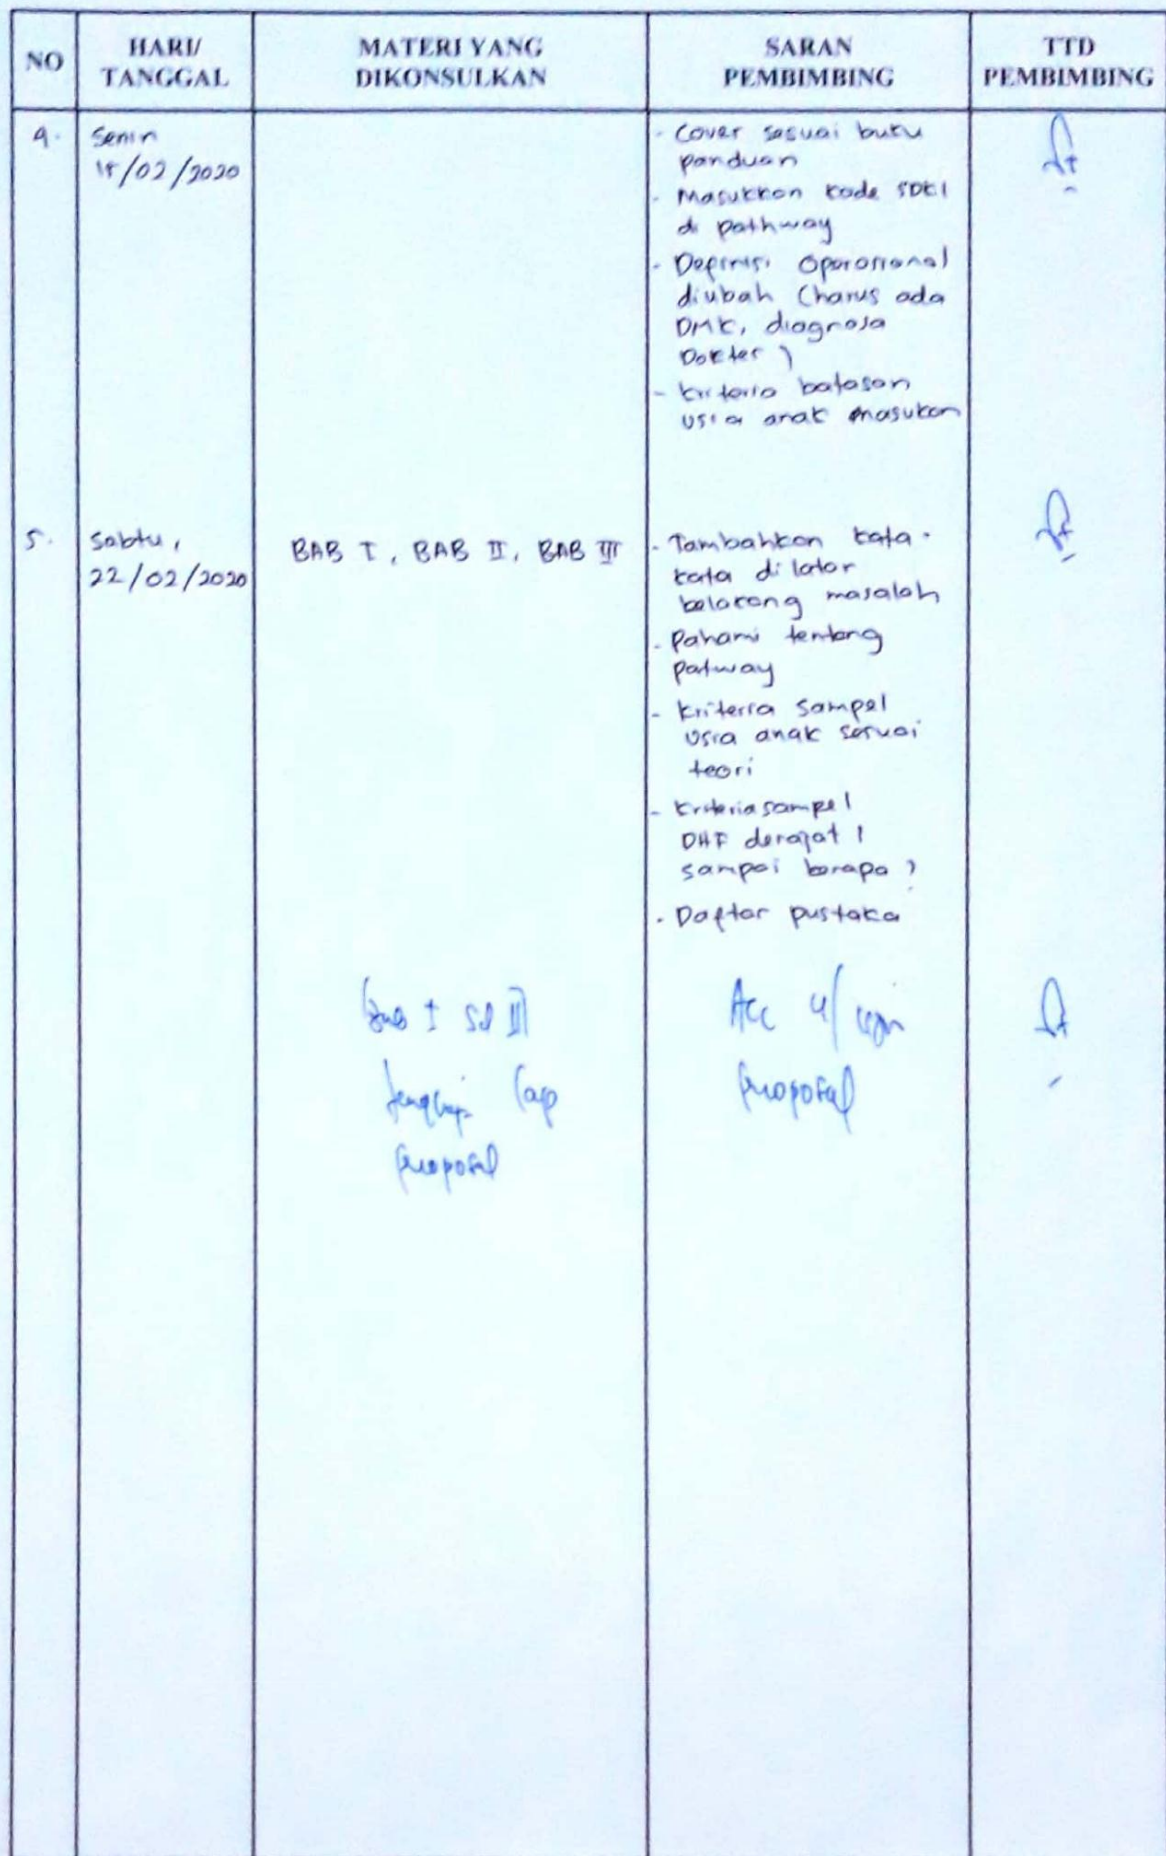 NO
HARI/
TANGGAL
MATERI YANG
DIKONSULKAN
SARAN
PEMBIMBING
TTD
PEMBIMBING
4.
Senin
/02/2020
- Cover sesuai buku
panduan
- Masukkan kode SDKI
di pathway
- Definisi Operasional
diubah (harus ada
DMK, diagnosa
Dokter)
- kriteria batasan
usia anak masukan
5.
Sabtu,
22/02/2020
BAB I, BAB II, BAB III
- Tambahkan kata-
kata di latar
belakang masalah
- Pahami tentang
patway
- Kriteria sampel
usia anak sesuai
teori
- Kriteria sampel
DHF derajat 1
sampai berapa?
- Daftar pustaka
Bab I sd III
proposal
Acc u/
proposal